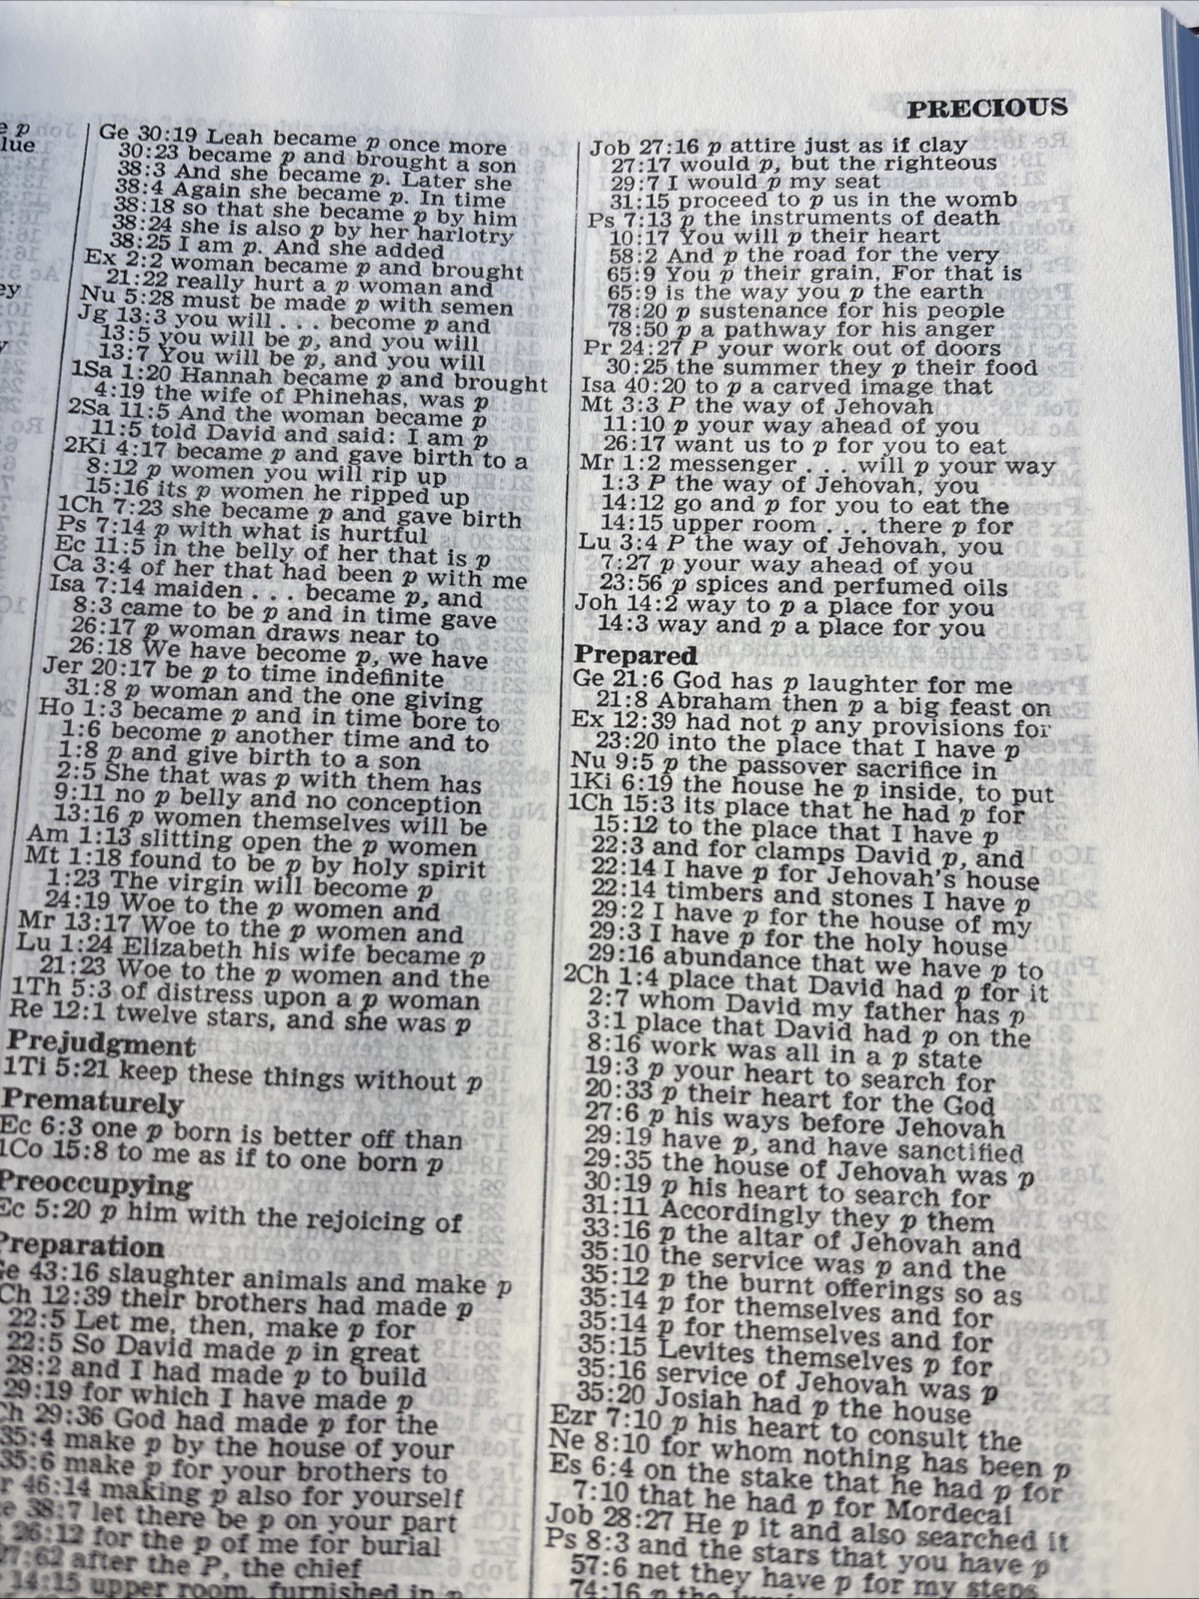 PRECIOUS
e p
lue
ey
y
Ge 30:19 Leah became p once more
30:23 became p and brought a son
38:3 And she became p. Later she
38:4 Again she became p. In time
38:18 so that she became p by him
38:24 she is also p by her harlotry
38:25 I am p. And she added
Ex 2:2 woman became p and brought
21:22 really hurt a p woman and
Nu 5:28 must be made p with semen
Jg 13:3 you will . . . become p and
13:5 you will be p, and you will
13:7 You will be p, and you will
1Sa 1:20 Hannah became p and brought
4:19 the wife of Phinehas, was p
2Sa 11:5 And the woman became p
11:5 told David and said: I am p
2Ki 4:17 became p and gave birth to a
8:12 p women you will rip up
15:16 its p women he ripped up
1Ch 7:23 she became p and gave birth
Ps 7:14 p with what is hurtful
Ec 11:5 in the belly of her that is p
Ca 3:4 of her that had been p with me
Isa 7:14 maiden . . . became p, and
8:3 came to be p and in time gave
26:17 p woman draws near to
26:18 We have become p, we have
Jer 20:17 be p to time indefinite
31:8 p woman and the one giving
Ho 1:3 became p and in time bore to
1:6 become p another time and to
1:8 p and give birth to a son
2:5 She that was p with them has
9:11 no p belly and no conception
13:16 p women themselves will be
Am 1:13 slitting open the p women
Mt 1:18 found to be p by holy spirit
1:23 The virgin will become p
24:19 Woe to the p women and
Mr 13:17 Woe to the p women and
Lu 1:24 Elizabeth his wife became p
21:23 Woe to the p women and the
1Th 5:3 of distress upon a p woman
Re 12:1 twelve stars, and she was p
Prejudgment
1Ti 5:21 keep these things without p
Prematurely
Ec 6:3 one p born is better off than
1Co 15:8 to me as if to one born p
Preoccupying
Ec 5:20 p him with the rejoicing of
Preparation
Ge 43:16 slaughter animals and make p
Ch 12:39 their brothers had made p
22:5 Let me, then, make p for
22:5 So David made p in great
28:2 and I had made p to build
29:19 for which I have made p
Ch 29:36 God had made p for the
35:4 make p by the house of your
35:6 make p for your brothers to
r 46:14 making p also for yourself
e 38:7 let there be p on your part
26:12 for the p of me for burial
27:62 after the P, the chief
14:15 upper room, furnished in p
Job 27:16 p attire just as if clay
27:17 would p, but the righteous
29:7 I would p my seat
31:15 proceed to p us in the womb
Ps 7:13 p the instruments of death
10:17 You will p their heart
58:2 And p the road for the very
65:9 You p their grain, For that is
65:9 is the way you p the earth
78:20 p sustenance for his people
78:50 p a pathway for his anger
Pr 24:27 P your work out of doors
30:25 the summer they p their food
Isa 40:20 to p a carved image that
Mt 3:3 P the way of Jehovah
11:10 p your way ahead of you
26:17 want us to p for you to eat
Mr 1:2 messenger . . . will p your way
1:3 P the way of Jehovah, you
14:12 go and p for you to eat the
14:15 upper room . . . there p for
Lu 3:4 P the way of Jehovah, you
7:27 p your way ahead of you
23:56 p spices and perfumed oils
Joh 14:2 way to p a place for you
14:3 way and p a place for you
Prepared
Ge 21:6 God has p laughter for me
21:8 Abraham then p a big feast on
Ex 12:39 had not p any provisions for
23:20 into the place that I have p
Nu 9:5 p the passover sacrifice in
1Ki 6:19 the house he p inside, to put
1Ch 15:3 its place that he had p for
15:12 to the place that I have p
22:3 and for clamps David p, and
22:14 I have p for Jehovah's house
22:14 timbers and stones I have p
29:2 I have p for the house of my
29:3 I have p for the holy house
29:16 abundance that we have p to
2Ch 1:4 place that David had p for it
2:7 whom David my father has p
3:1 place that David had p on the
8:16 work was all in a p state
19:3 p your heart to search for
20:33 p their heart for the God
27:6 p his ways before Jehovah
29:19 have p, and have sanctified
29:35 the house of Jehovah was p
30:19 p his heart to search for
31:11 Accordingly they p them
33:16 p the altar of Jehovah and
35:10 the service was p and the
35:12 p the burnt offerings so as
35:14 p for themselves and for
35:14 p for themselves and for
35:15 Levites themselves p for
35:16 service of Jehovah was p
35:20 Josiah had p the house
Ezr 7:10 p his heart to consult the
Ne 8:10 for whom nothing has been p
Es 6:4 on the stake that he had p for
7:10 that he had p for Mordecai
Job 28:27 He p it and also searched it
Ps 8:3 and the stars that you have p
57:6 net they have p for my steps
74:16 p the